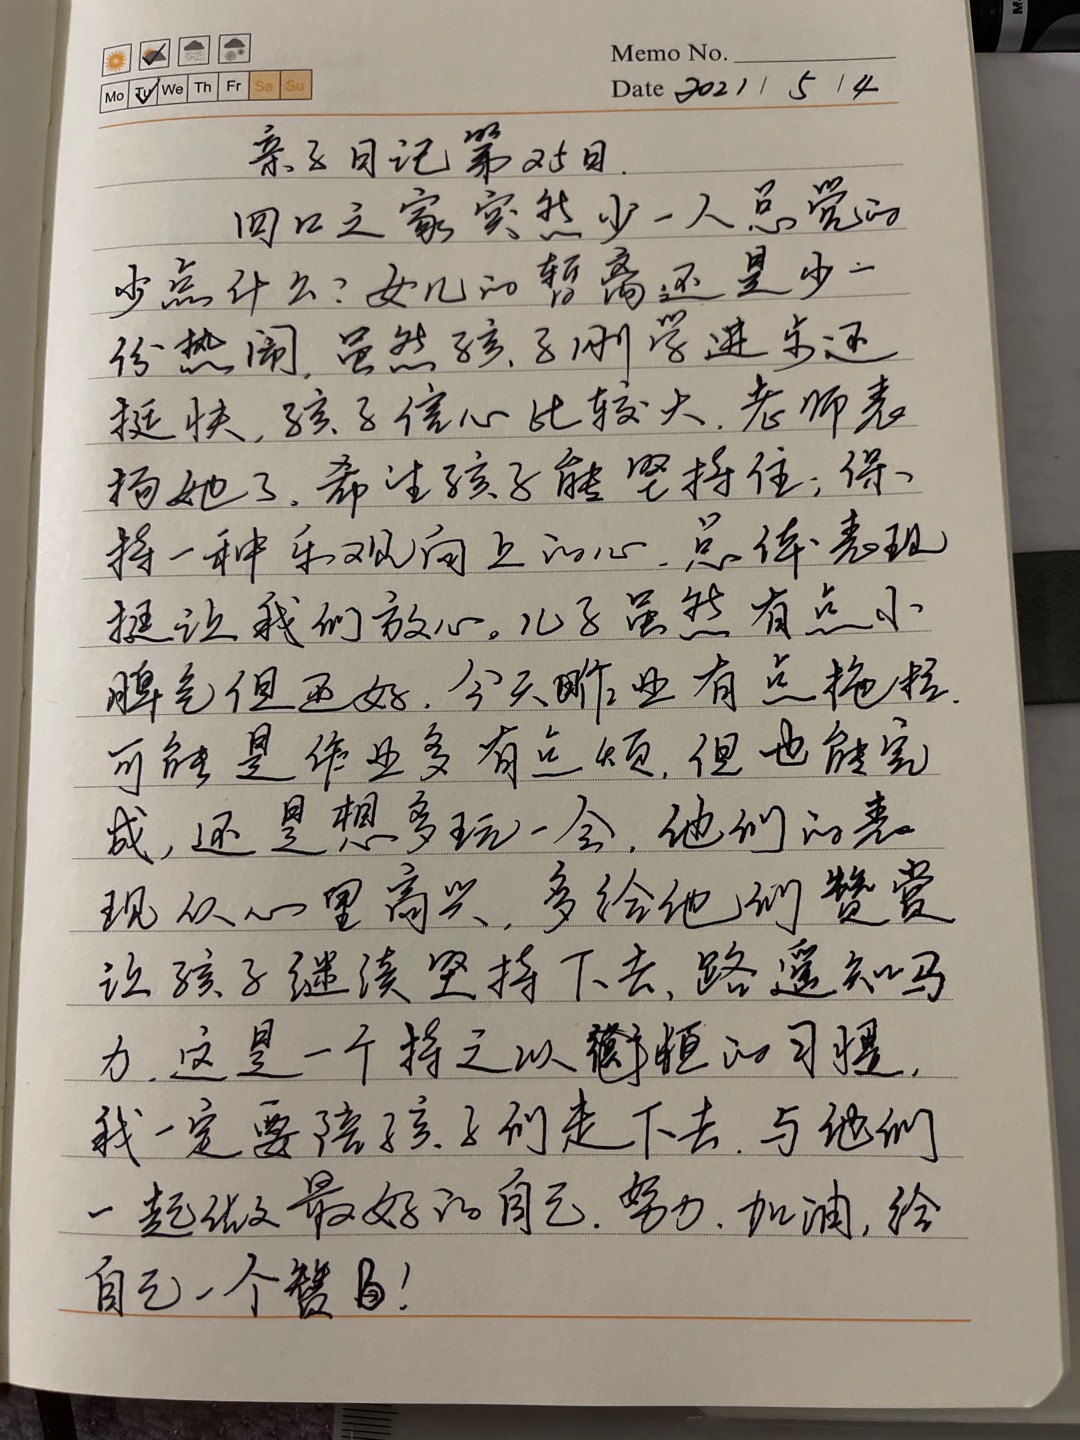 Memo No.
Mo Tu We Th Fr Sa Su
Date 2021/5/4
亲子日记第25日.
四口之家突然少一人总觉的
少点什么?女儿的暂离还是少一
份热闹,虽然孩子刚学进步还
挺快,孩子信心比较大.老师表
扬她了.希望孩子能坚持住,保
持一种乐观向上的心.总体表现
挺让我们放心。儿子虽然有点小
脾气但还好.今天作业有点拖拉.
可能是作业多有点烦,但也能完
成,还是想多玩一会.他们的表
现从心里高兴,多给他们赞赏
让孩子继续坚持下去,路遥知马
力.这是一个持之以恒的习惯,
我一定要陪孩子们走下去.与他们
一起做最好的自己.努力.加油,给
自己一个赞!